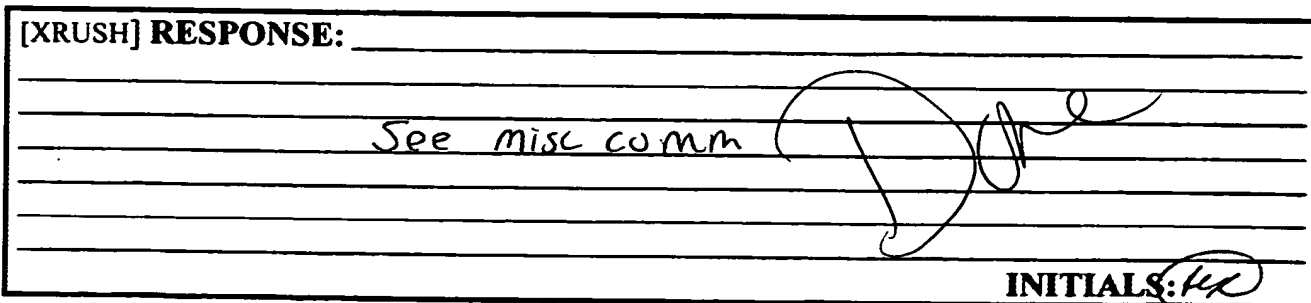 [XRUSH] RESPONSE:
See misc comm Done
INITIALS: